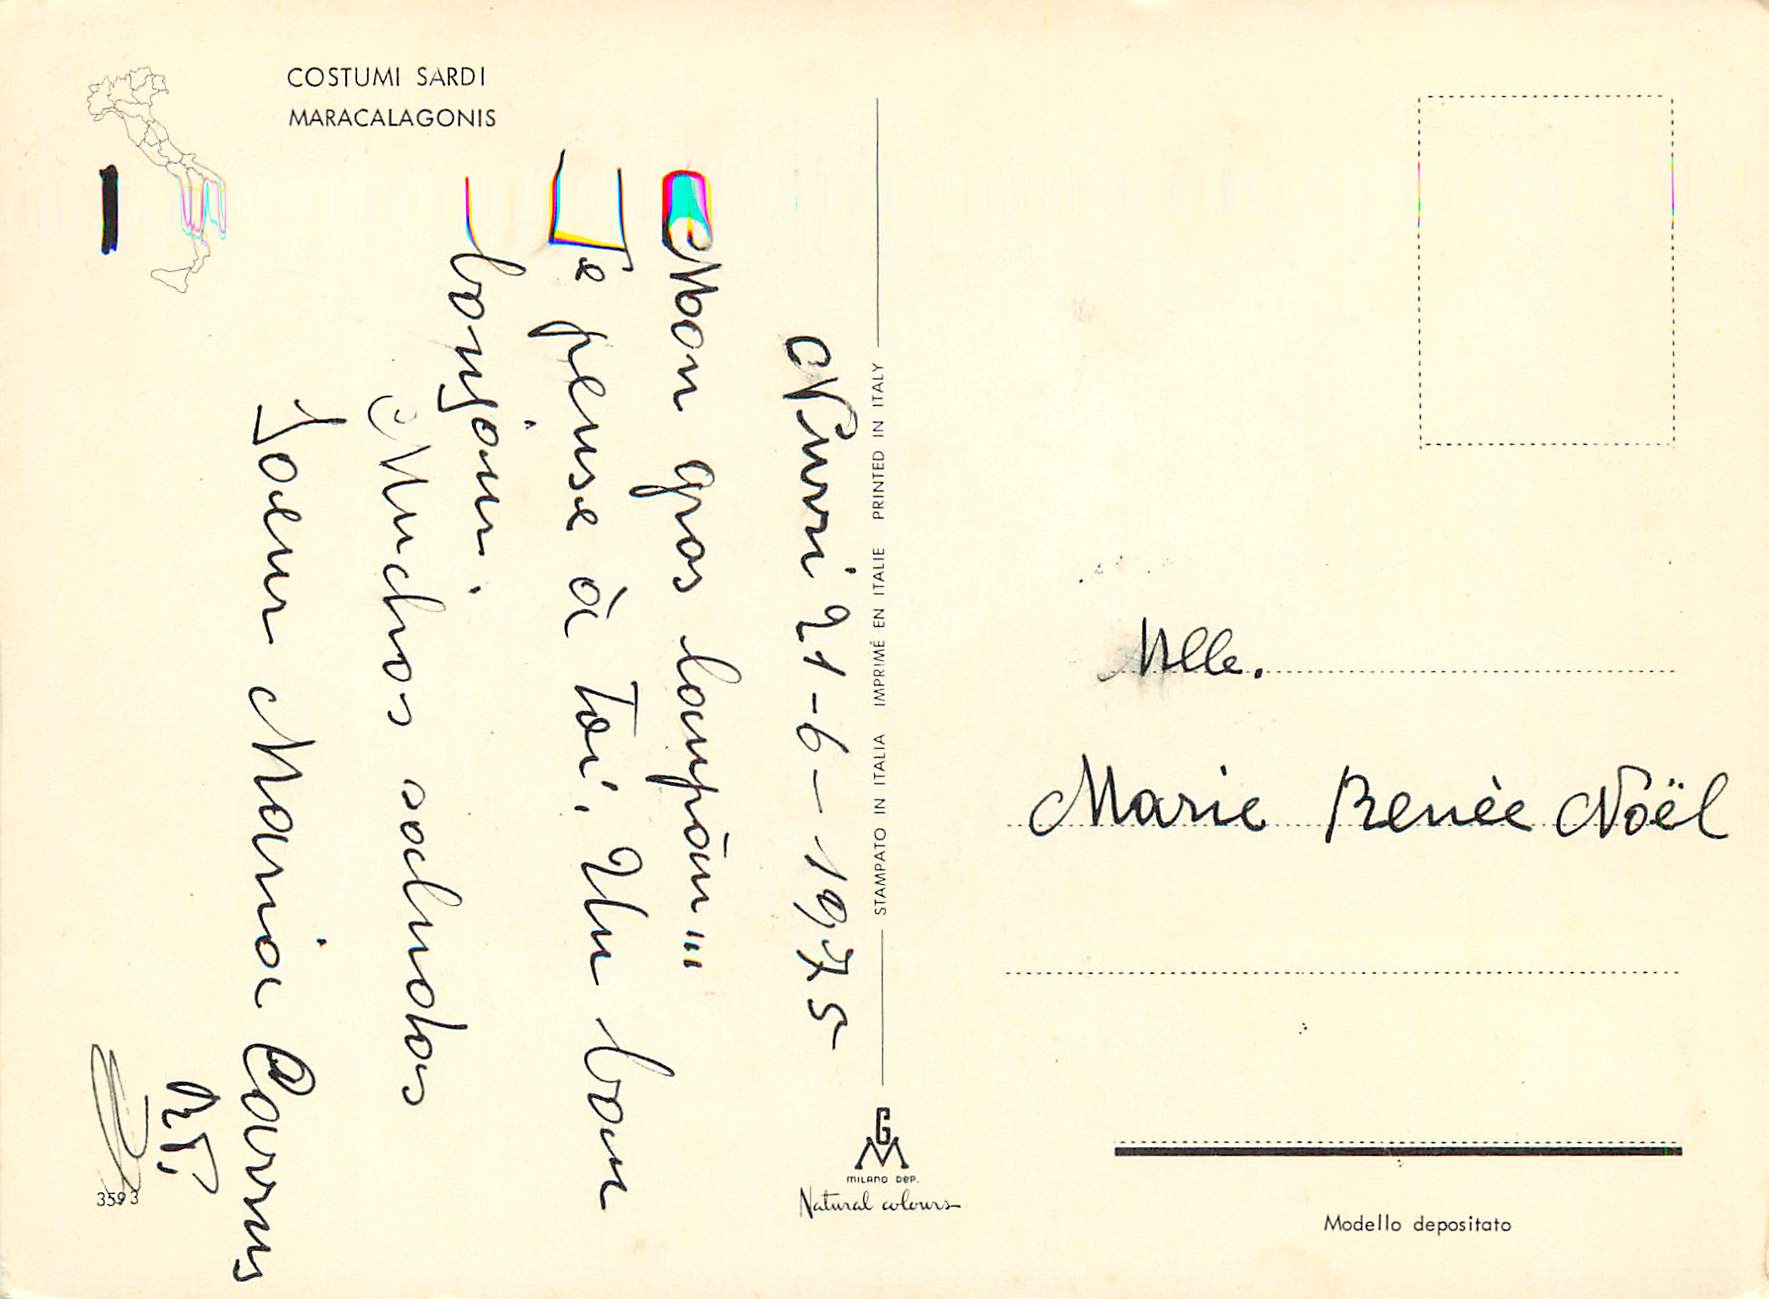 COSTUMI SARDI
MARACALAGONIS
Nurri 21-6-1975
Mon gros loupóun !!!
Je pense à Toi. Un bon
bonjour.
Muchos saludos
Soeur Maria Carrus
STAMPATO IN ITALIA IMPRIMÉ EN ITALIE PRINTED IN ITALY
GM
MILANO DEP.
Natural colours
3593
Mlle.
Marie Renèe Nöël
Modello depositato